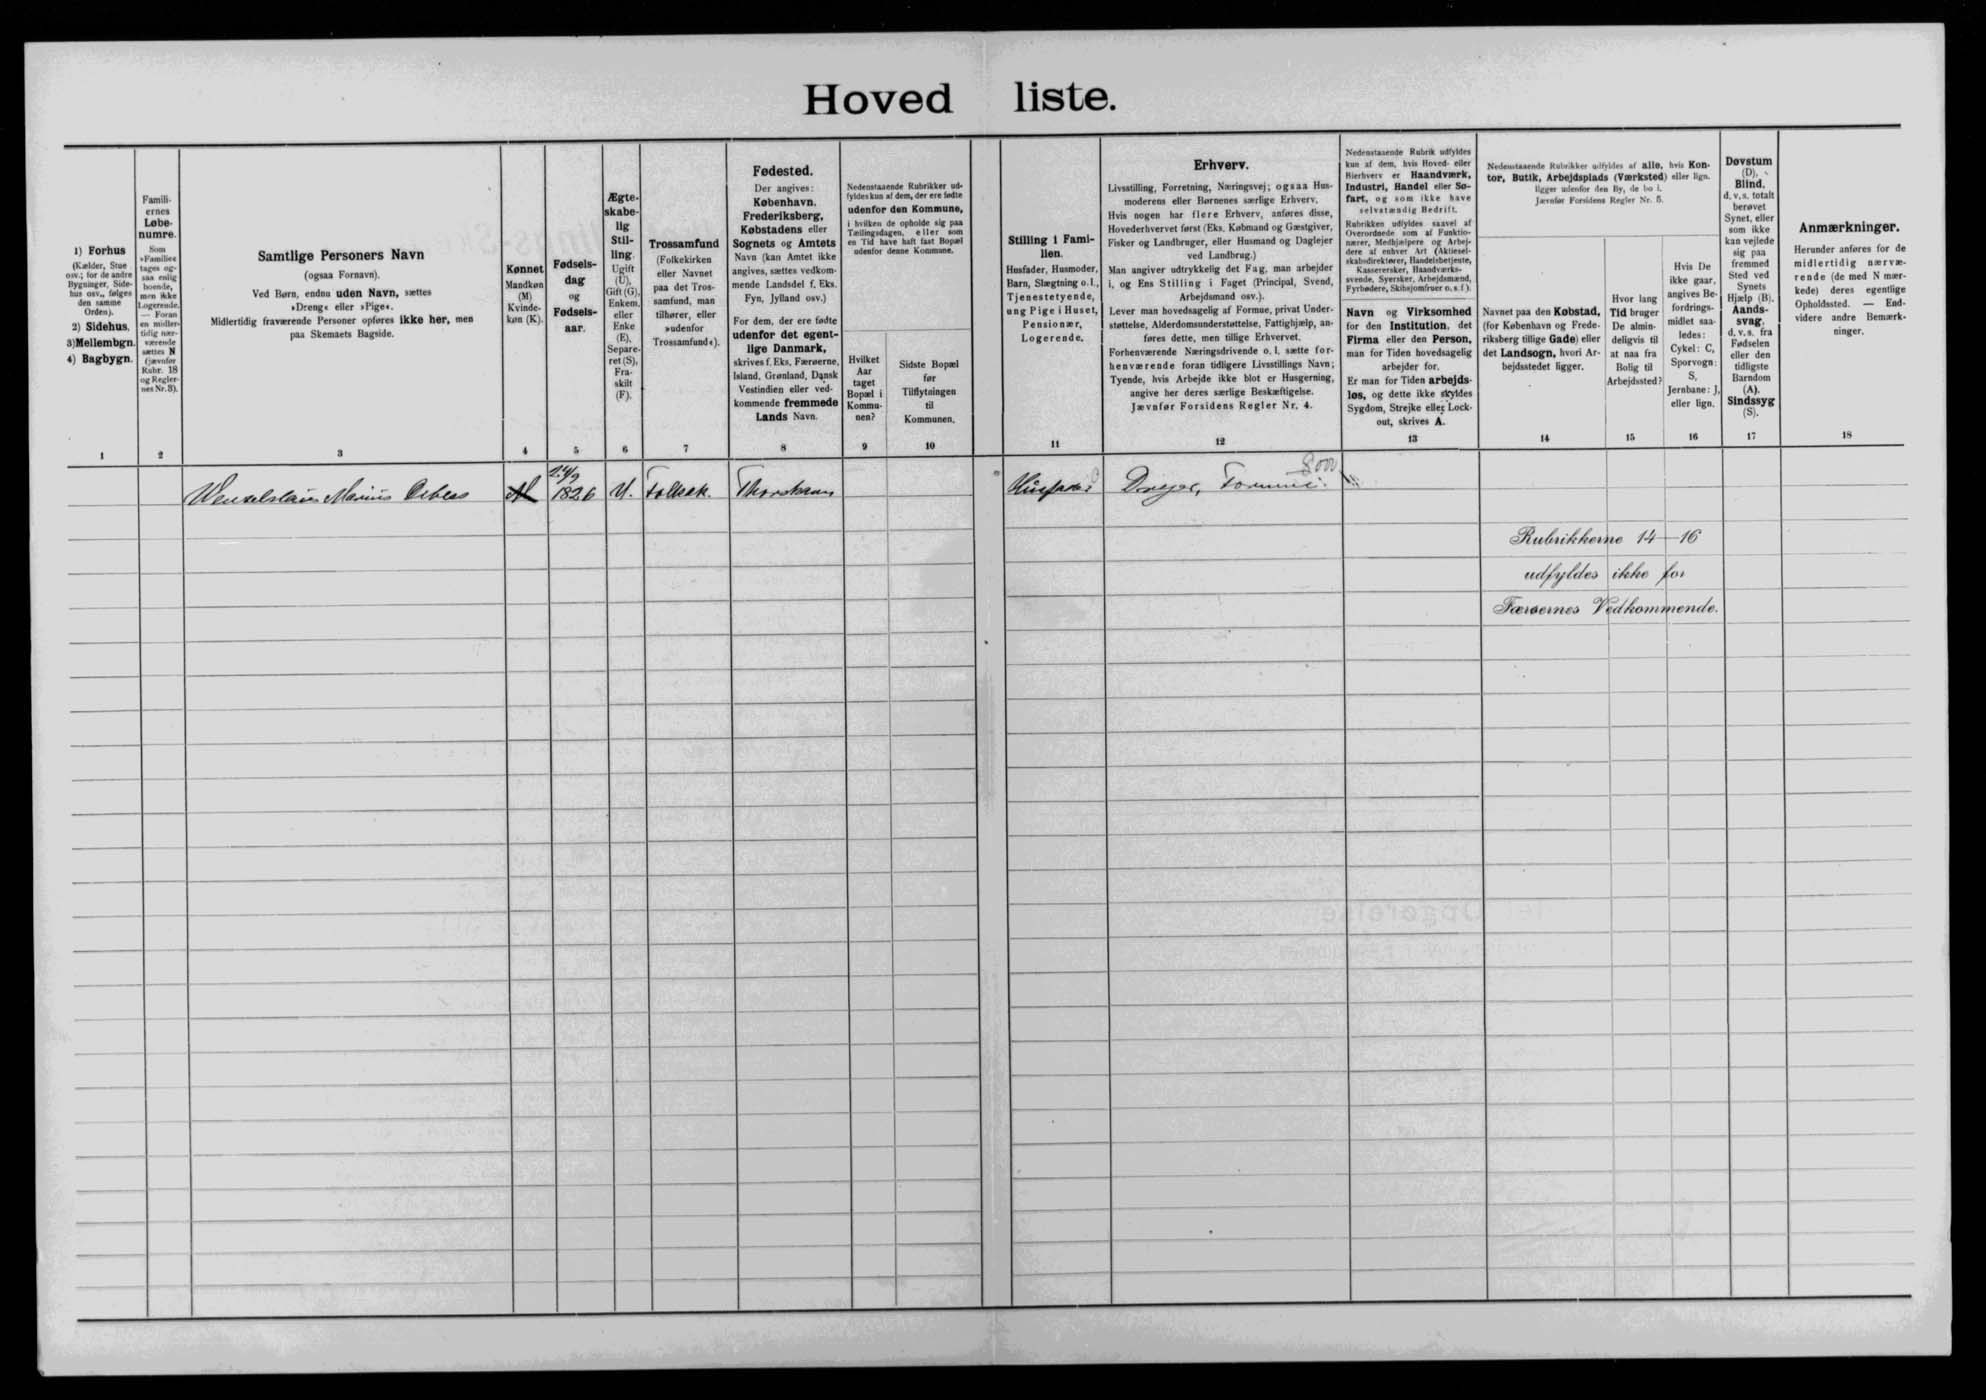 Hoved liste.
1) Forhus
(Kælder, Stue
osv.; for de andre
Bygninger, Side-
hus osv., følges
den samme
Orden).
2) Sidehus.
3) Mellembgn.
4) Bagbygn.
1
Famili-
ernes
Løbe-
numre.
Som
»Familie«
tages og-
saa enlig
boende,
men ikke
Logerende.
— Foran
en midler-
tidig nær-
værende
sættes N
(jævnfør
Rubr. 18
og Regler-
nes Nr. 3).
2
Samtlige Personers Navn
(ogsaa Fornavn).
Ved Børn, endnu uden Navn, sættes
»Dreng« eller »Pige«.
Midlertidig fraværende Personer opføres ikke her, men
paa Skemaets Bagside.
3
Kønnet
Mandkøn
(M)
Kvinde-
køn (K).
4
Fødsels-
dag
og
Fødsels-
aar.
5
Ægte-
skabe-
lig
Stil-
ling.
Ugift
(U),
Gift (G),
Enkem.
eller
Enke
(E),
Separe-
ret (S),
Fra-
skilt
(F).
6
Trossamfund
(Folkekirken
eller Navnet
paa det Tros-
samfund, man
tilhører, eller
»udenfor
Trossamfund«).
7
Fødested.
Der angives:
København,
Frederiksberg,
Købstadens eller
Sognets og Amtets
Navn (kan Amtet ikke
angives, sættes vedkom-
mende Landsdel f. Eks.
Fyn, Jylland osv.)
For dem, der ere fødte
udenfor det egent-
lige Danmark,
skrives f. Eks. Færøerne,
Island, Grønland, Dansk
Vestindien eller ved-
kommende fremmede
Lands Navn.
8
Nedenstaaende Rubrikker ud-
fyldes kun af dem, der ere fødte
udenfor den Kommune,
i hvilken de opholde sig paa
Tællingsdagen, eller som
en Tid have haft fast Bopæl
udenfor denne Kommune.
Hvilket
Aar
taget
Bopæl i
Kommu-
nen?
9
Sidste Bopæl
før
Tilflytningen
til
Kommunen.
10
Stilling i Fami-
lien.
Husfader, Husmoder,
Barn, Slægtning o. l.,
Tjenestetyende,
ung Pige i Huset,
Pensionær,
Logerende.
11
Erhverv.
Livsstilling, Forretning, Næringsvej; ogsaa Hus-
moderens eller Børnenes særlige Erhverv.
Hvis nogen har flere Erhverv, anføres disse,
Hovederhvervet først (Eks. Købmand og Gæstgiver,
Fisker og Landbruger, eller Husmand og Daglejer
ved Landbrug.)
Man angiver udtrykkelig det Fag, man arbejder
i, og Ens Stilling i Faget (Principal, Svend,
Arbejdsmand osv.).
Lever man hovedsagelig af Formue, privat Under-
støttelse, Alderdomsunderstøttelse, Fattighjælp, an-
føres dette, men tillige Erhvervet.
Forhenværende Næringsdrivende o. l. sætte for-
henværende foran tidligere Livsstillings Navn;
Tyende, hvis Arbejde ikke blot er Husgerning,
angive her deres særlige Beskæftigelse.
Jævnfør Forsidens Regler Nr. 4.
12
Nedenstaaende Rubrik udfyldes
kun af dem, hvis Hoved- eller
Bierhverv er Haandværk,
Industri, Handel eller Sø-
fart, og som ikke have
selvstændig Bedrift.
Rubrikken udfyldes saavel af
Overordnede som af Funktio-
nærer, Medhjælpere og Arbej-
dere af enhver Art (Aktiesel-
skabsdirektører, Handelsbetjente,
Kasserersker, Haandværks-
svende, Syersker, Arbejdsmænd,
Fyrbødere, Skibsjomfruer o. s. f.).
Navn og Virksomhed
for den Institution, det
Firma eller den Person,
man for Tiden hovedsagelig
arbejder for.
Er man for Tiden arbejds-
løs, og dette ikke skyldes
Sygdom, Strejke eller Lock-
out, skrives A.
13
Nedenstaaende Rubrikker udfyldes af alle, hvis Kon-
tor, Butik, Arbejdsplads (Værksted) eller lign.
ligger udenfor den By, de bo i.
Jævnfør Forsidens Regler Nr. 5.
Navnet paa den Købstad,
(for København og Frede-
riksberg tillige Gade) eller
det Landsogn, hvori Ar-
bejdsstedet ligger.
14
Hvor lang
Tid bruger
De almin-
deligvis til
at naa fra
Bolig til
Arbejdssted?
15
Hvis De
ikke gaar,
angives Be-
fordrings-
midlet saa-
ledes:
Cykel: C,
Sporvogn:
S,
Jernbane: J,
eller lign.
16
Døvstum
(D),
Blind,
d. v. s. totalt
berøvet
Synet, eller
som ikke
kan vejlede
sig paa
fremmed
Sted ved
Synets
Hjælp (B).
Aands-
svag,
d. v. s. fra
Fødselen
eller den
tidligste
Barndom
(A).
Sindssyg
(S).
17
Anmærkninger.
Herunder anføres for de
midlertidig nærvæ-
rende (de med N mær-
kede) deres egentlige
Opholdssted. — End-
videre andre Bemærk-
ninger.
18
Wenzelslaus Marius M 1826 U. Folkek. Thorshavn Husfader Drejer, Formue. 8000
Rubrikkerne 14—16
udfyldes ikke for
Færøernes Vedkommende.